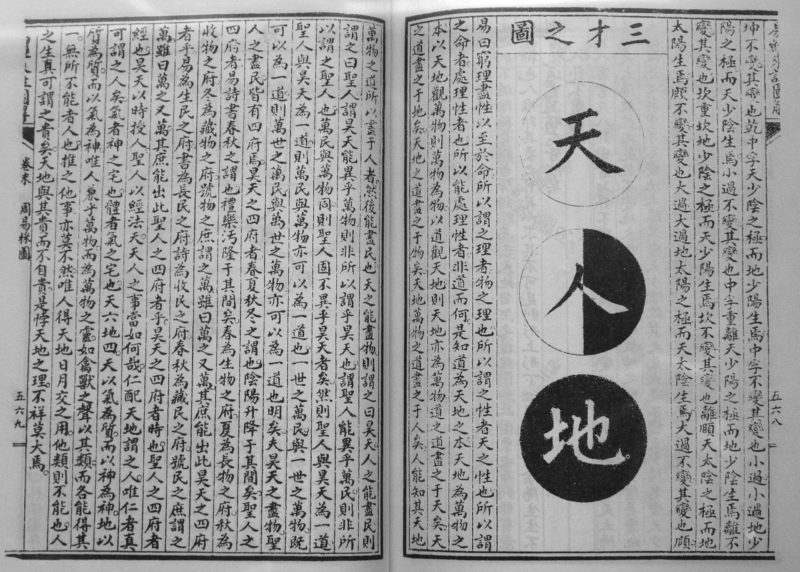 五六八
坤不變其變也乾中孚天少陰之極而地少陽生焉中孚不變其變也小過小過地少
陽之極而天少陰生焉小過不變其變也中孚重離天少陽之極而地少陰生焉離不
變其變也坎重坎地少陰之極而天少陽生焉坎不變其變也離頤天太陰之極而地
太陽生焉頤不變其變也大過大過地太陽之極而天太陰生焉大過不變其變也頤
三才之圖
天
人
地
易曰窮理盡性以至於命所以謂之理者物之理也所以謂之性者天之性也所以謂
之命者處理性者也所以能處理性者非道而何是知道為天地之本天地為萬物之
本以天地觀萬物則萬物為物以道觀天地則天地亦為萬物道之道盡之于天矣天
之道盡之于地矣天地之道盡之于物矣天地萬物之道盡之于人矣人能知其天地
萬物之道所以盡于人者然後能盡民也天之能盡物則謂之曰昊天人之能盡民則
謂之曰聖人謂昊天能異乎萬物則非所以謂乎昊天也謂聖人能異乎萬民則非所
以謂之聖人也萬民與萬物同則聖人固不異乎昊天者矣然則聖人與昊天為一道
聖人與昊天為一道則萬民與萬物亦可以為一道也一世之萬民與一世之萬物既
可以為一道則萬世之萬民與萬世之萬物亦可以為一道也明矣夫昊天之盡物聖
人之盡民皆有四府焉昊天之四府者春夏秋冬之謂也陰陽升降于其間矣聖人之
四府者易詩書春秋之謂也禮樂汚隆于其間矣春為生物之府夏為長物之府秋為
收物之府冬為藏物之府號物之庶謂之萬雖曰萬之又萬其庶能出此昊天之四府
者乎易為生民之府書為長民之府詩為收民之府春秋為藏民之府號民之庶謂之
萬雖曰萬之又萬其庶能出此聖人之四府者乎昊天之四府者時也聖人之四府者
經也昊天以時授人聖人以經法天天人之事當如何哉仁配天地謂之人唯仁者真
可謂之人矣氣者神之宅也體者氣之宅也天六地四天以氣為質而以神為神地以
質為質而以氣為神唯人兼乎萬物而為萬物之靈如禽獸之聲以其類而各能得其
一無所不能者人也推之他事亦莫不然唯人得天地日月交之用他類則不能也人
之生真可謂之貴矣天地與其貴而不自貴是悖天地之理不祥莫大焉
卷末 周易采圖
五六九